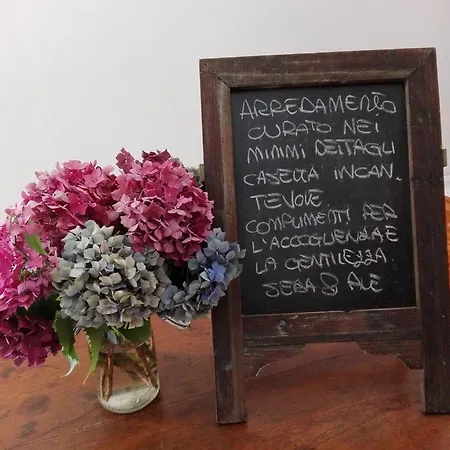 ARREDAMENTO
CURATO NEI
MIMMI DETTAGLI
CASETTA INCAN.
TEVOLE
COMPLIMENTI PER
L'ACCOGLIENZA E
LA GENTILEZZA.
SEBA & ALE